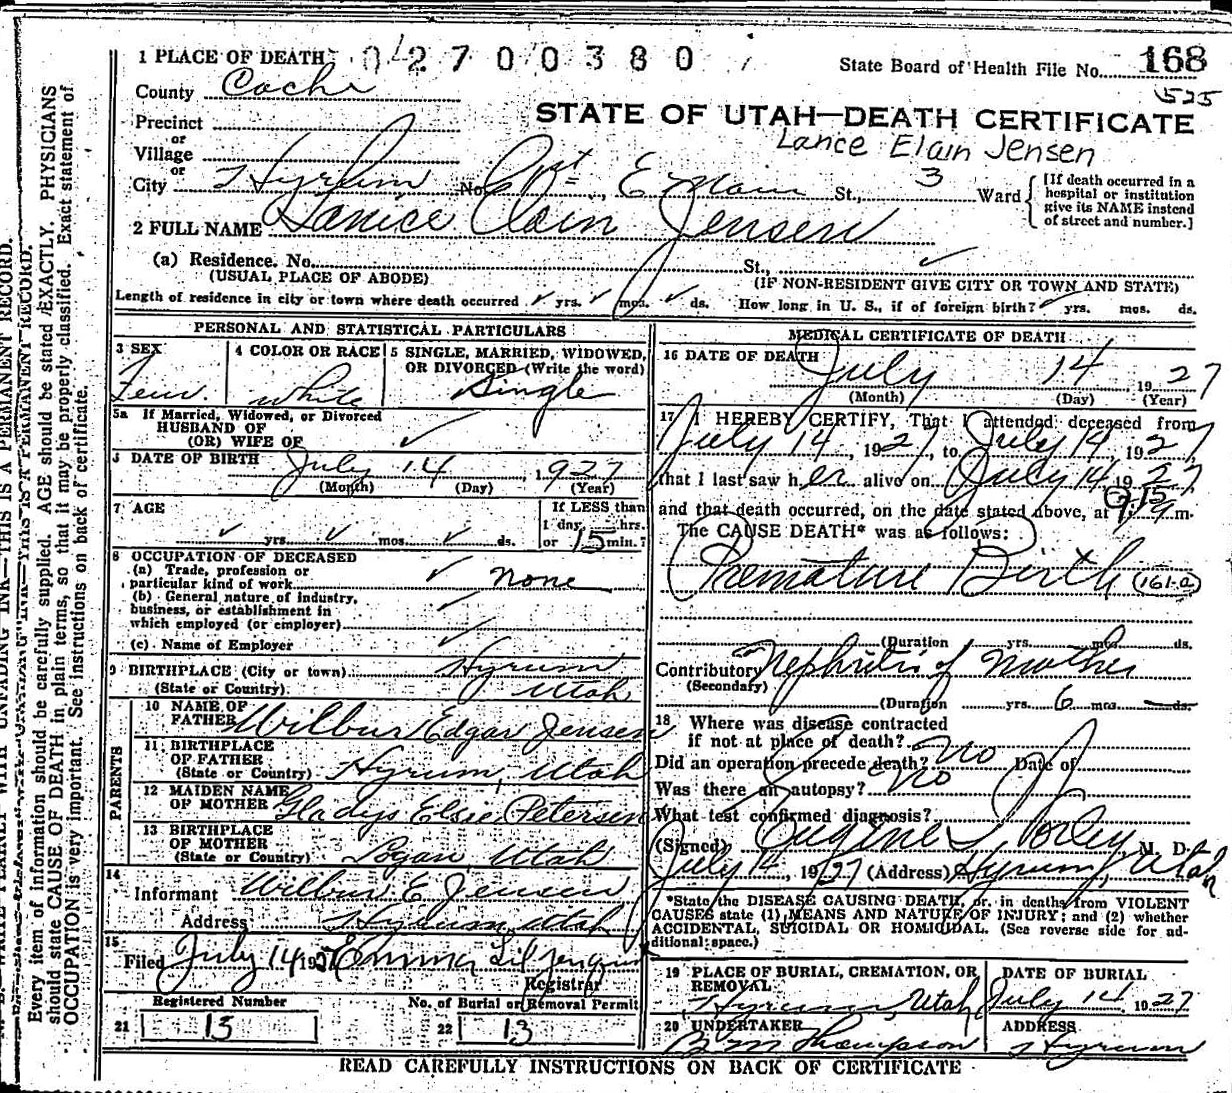 1 PLACE OF DEATH 02700380
State Board of Health File No. 168
525
County Cache
STATE OF UTAH—DEATH CERTIFICATE
Precinct
or
Lance Elain Jensen
Village
or
City Hyrum No. E Main St., 3 Ward
[If death occurred in a
hospital or institution
give its NAME instead
of street and number.]
2 FULL NAME Janice Elain Jensen
(a) Residence. No. St.,
(USUAL PLACE OF ABODE) (IF NON-RESIDENT GIVE CITY OR TOWN AND STATE)
Length of residence in city or town where death occurred yrs. mos. ds. How long in U. S., if of foreign birth? yrs. mos. ds.
PERSONAL AND STATISTICAL PARTICULARS
3 SEX
Fem.
4 COLOR OR RACE
white
5 SINGLE, MARRIED, WIDOWED,
OR DIVORCED (Write the word)
Single
5a If Married, Widowed, or Divorced
HUSBAND OF
(OR) WIFE OF
DATE OF BIRTH July 14 1927
(Month) (Day) (Year)
7 AGE
yrs. mos. ds.
If LESS than
1 day, hrs.
or 15 min.?
8 OCCUPATION OF DECEASED
(a) Trade, profession or
particular kind of work none
(b) General nature of industry,
business, or establishment in
which employed (or employer)
(c) Name of Employer
9 BIRTHPLACE (City or town) Hyrum
(State or Country) Utah
PARENTS
10 NAME OF
FATHER Wilbur Edgar Jensen
11 BIRTHPLACE
OF FATHER
(State or Country) Hyrum, Utah
12 MAIDEN NAME
OF MOTHER Gladys Elsie Petersen
13 BIRTHPLACE
OF MOTHER
(State or Country) Logan, Utah
14
Informant Wilbur E Jensen
Address Hyrum Utah
15
Filed July 14 1927 Emma Lil
Registrar
Registered Number
21 13
No. of Burial or Removal Permit
22 13
MEDICAL CERTIFICATE OF DEATH
16 DATE OF DEATH
July 14 1927
(Month) (Day) (Year)
17 I HEREBY CERTIFY, That I attended deceased from
July 14, 1927, to July 14, 1927,
that I last saw her alive on July 14 1927
and that death occurred, on the date stated above, at 9:15 a m.
The CAUSE DEATH* was as follows:
Premature Birth (161-a)
(Duration yrs. mos. ds.
Contributory Nephritis of Mother
(Secondary)
(Duration yrs. 6 mos. ds.
18 Where was disease contracted
if not at place of death?
Did an operation precede death? No Date of
Was there an autopsy? No
What test confirmed diagnosis?
(Signed) Eugene S Worley, M. D.
July 14, 1927 (Address) Hyrum, Utah
*State the DISEASE CAUSING DEATH, or, in deaths from VIOLENT
CAUSES state (1) MEANS AND NATURE OF INJURY; and (2) whether
ACCIDENTAL, SUICIDAL OR HOMICIDAL. (See reverse side for ad-
ditional space.)
19 PLACE OF BURIAL, CREMATION, OR
REMOVAL
Hyrum, Utah
DATE OF BURIAL
July 14 1927
20 UNDERTAKER
Thompson
ADDRESS
Hyrum
READ CAREFULLY INSTRUCTIONS ON BACK OF CERTIFICATE
WRITE PLAINLY WITH UNFADING INK—THIS IS A PERMANENT RECORD.
Every item of information should be carefully supplied. AGE should be stated EXACTLY. PHYSICIANS
should state CAUSE OF DEATH in plain terms, so that it may be properly classified. Exact statement of
OCCUPATION is very important. See instructions on back of certificate.